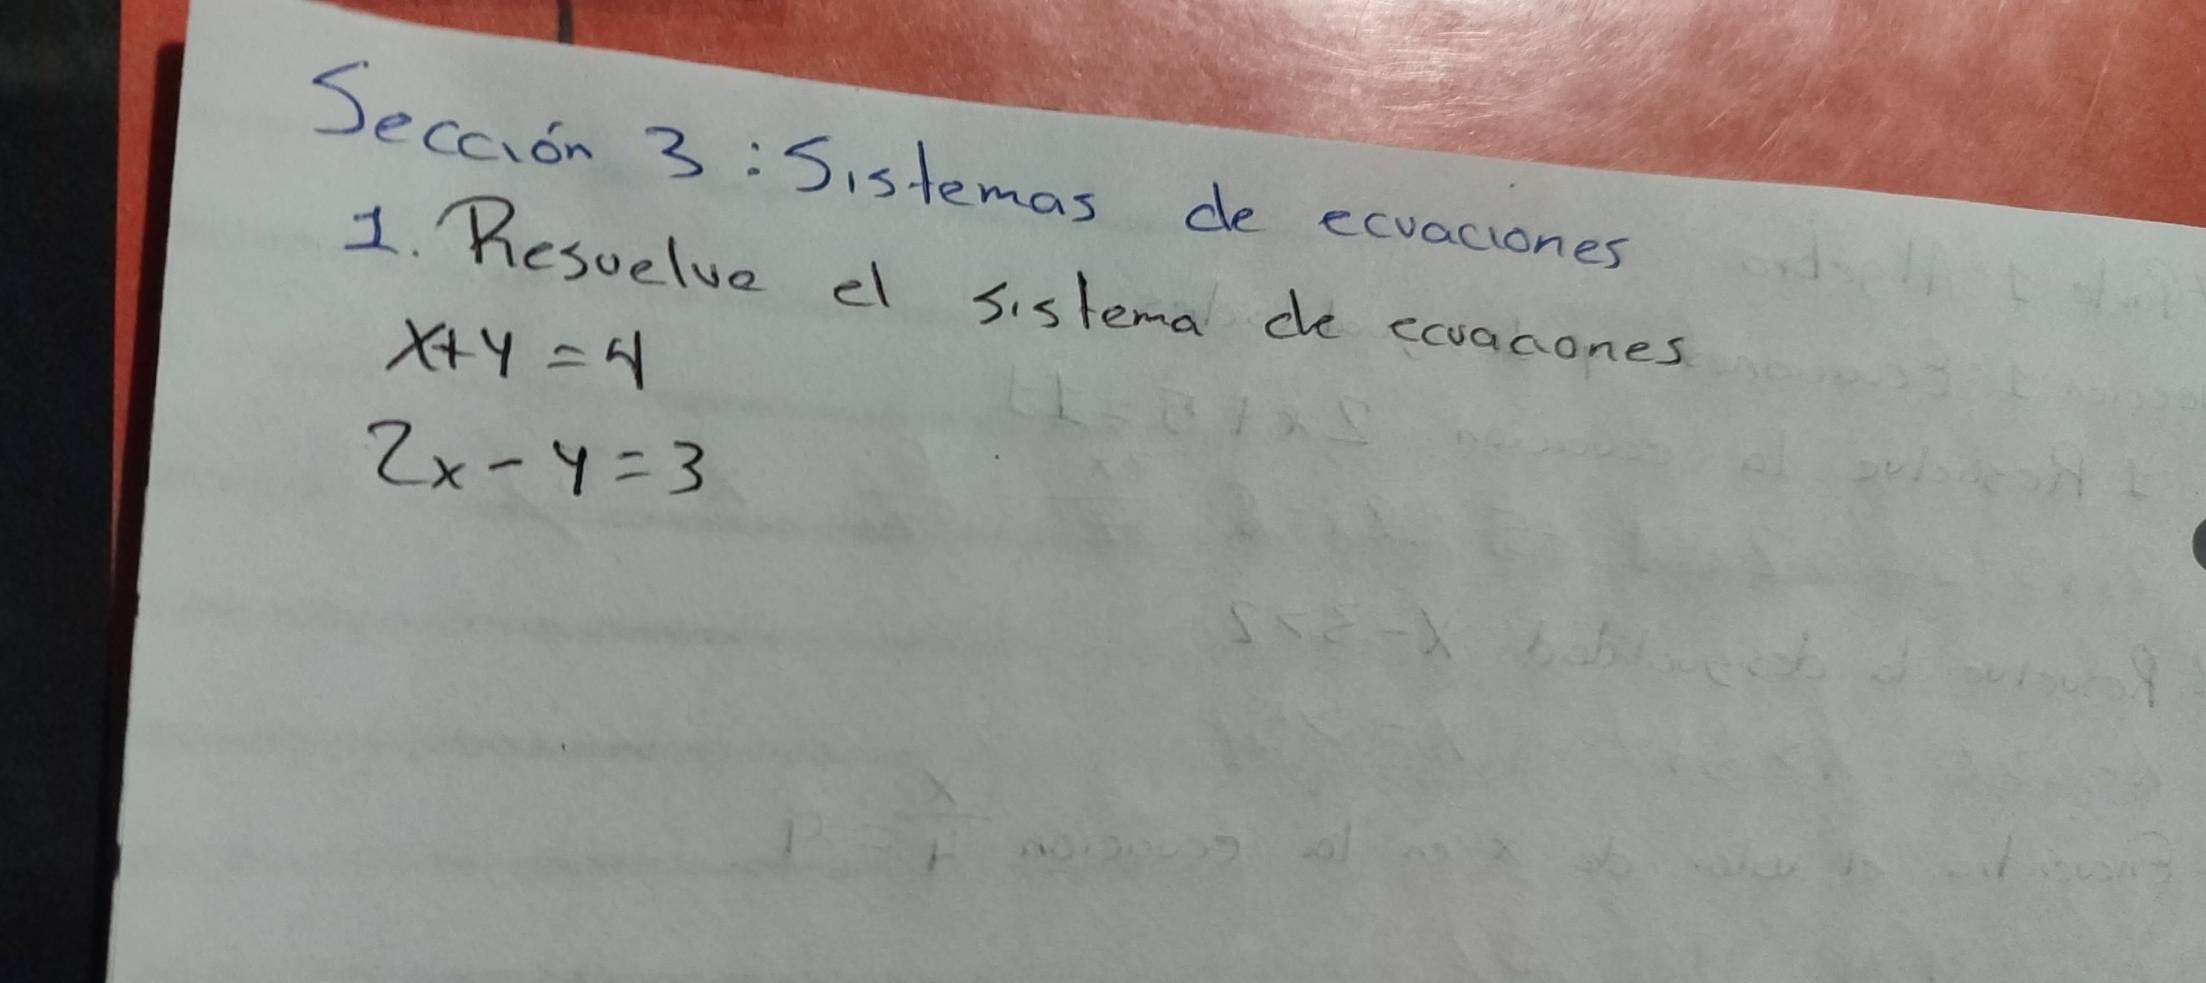 Sección 3 : Sistemas de ecuaciones
1. Resuelve el sistema de ecuaciones
x+y = 4
2x - y = 3